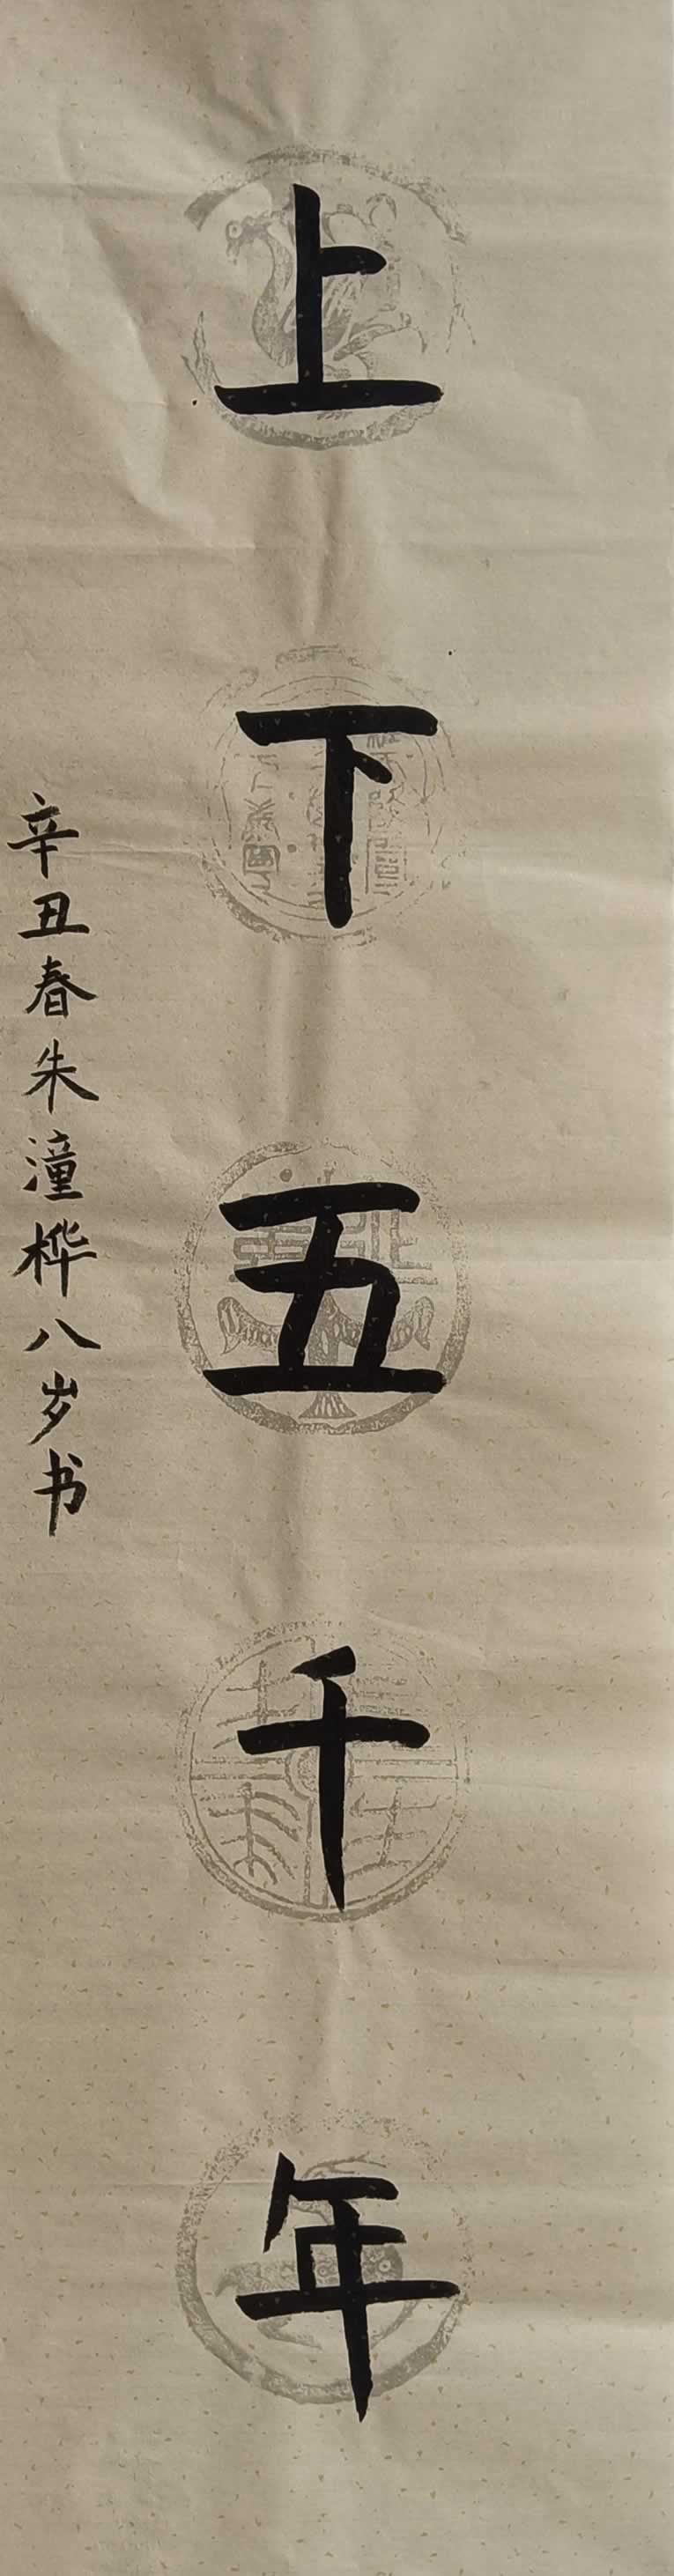 上下五千年
辛丑春朱潼桦八岁书